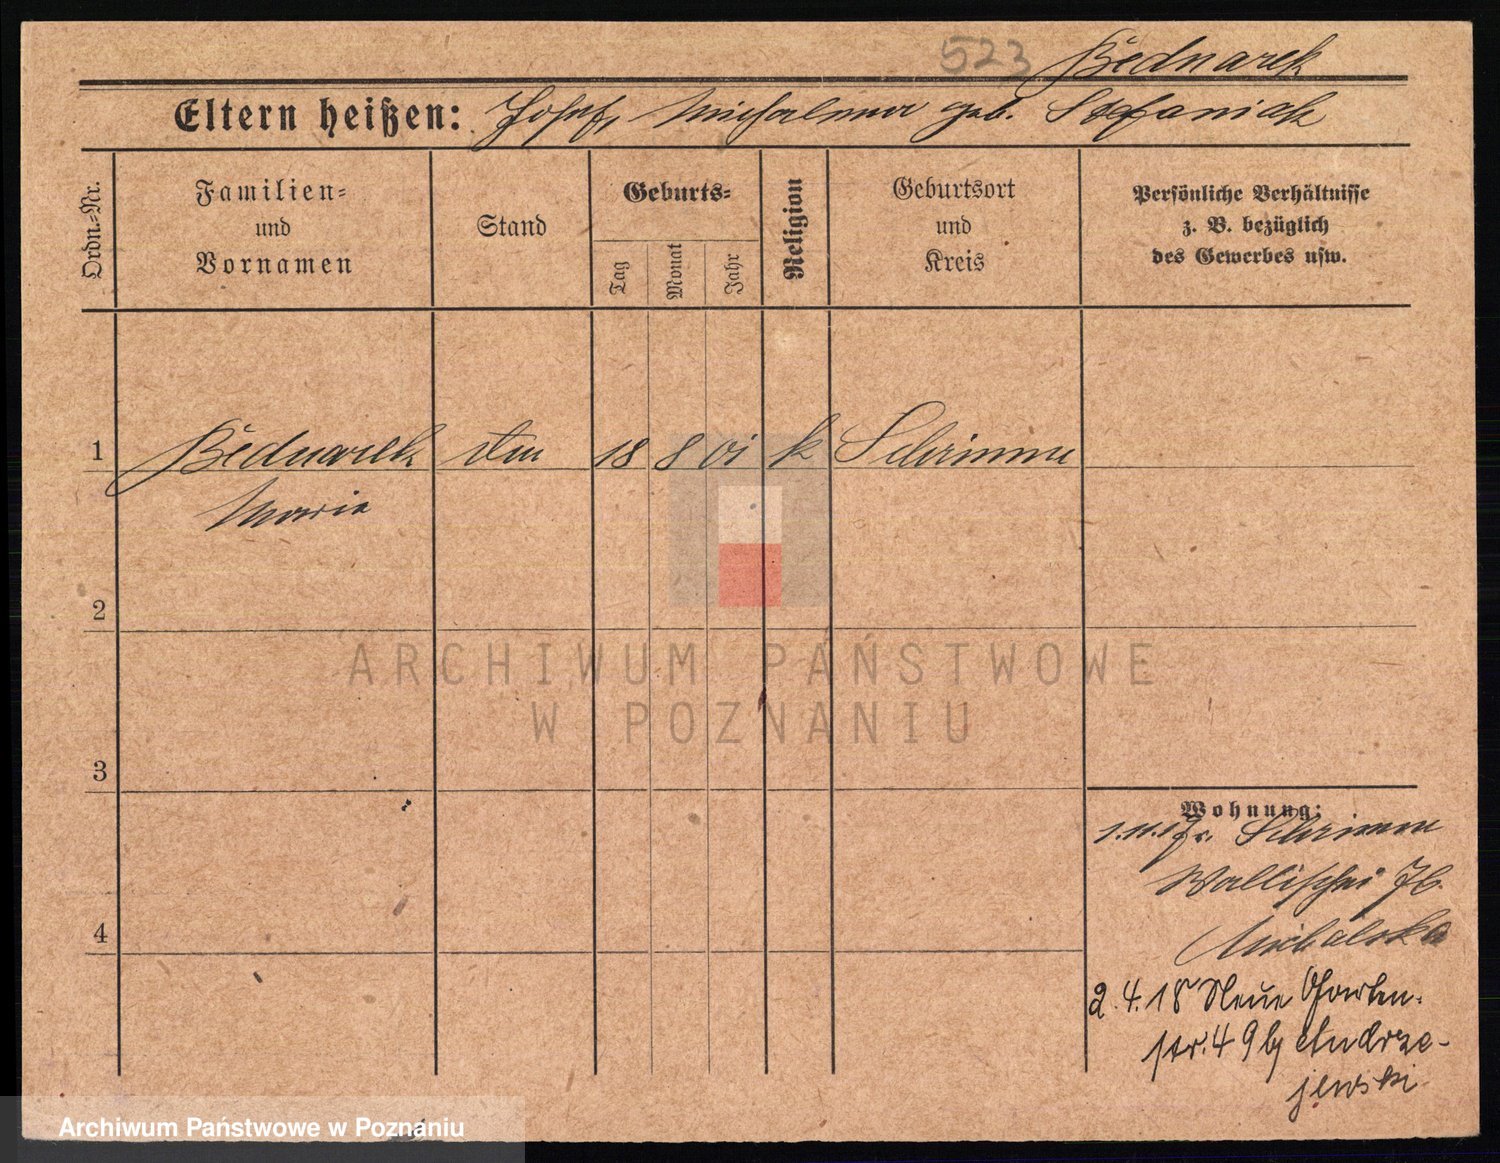 523 Bednarek
Eltern heißen: Josef, Michalina geb. Stefaniak
Ordn.-Nr.
Familien-
und
Vornamen
Stand
Geburts-
Tag
Monat
Jahr
Religion
Geburtsort
und
Kreis
Persönliche Verhältnisse
z. B. bezüglich
des Gewerbes usw.
1 Bednarek 18 8 01 k Schrimm
Maria
2
3
4
Wohnung:
Schrimm
Wallischei 76
Michalska
2.4.18 Neue Garten-
str. 49 bj Andrze-
jewski
ARCHIWUM PAŃSTWOWE
W POZNANIU
Archiwum Państwowe w Poznaniu